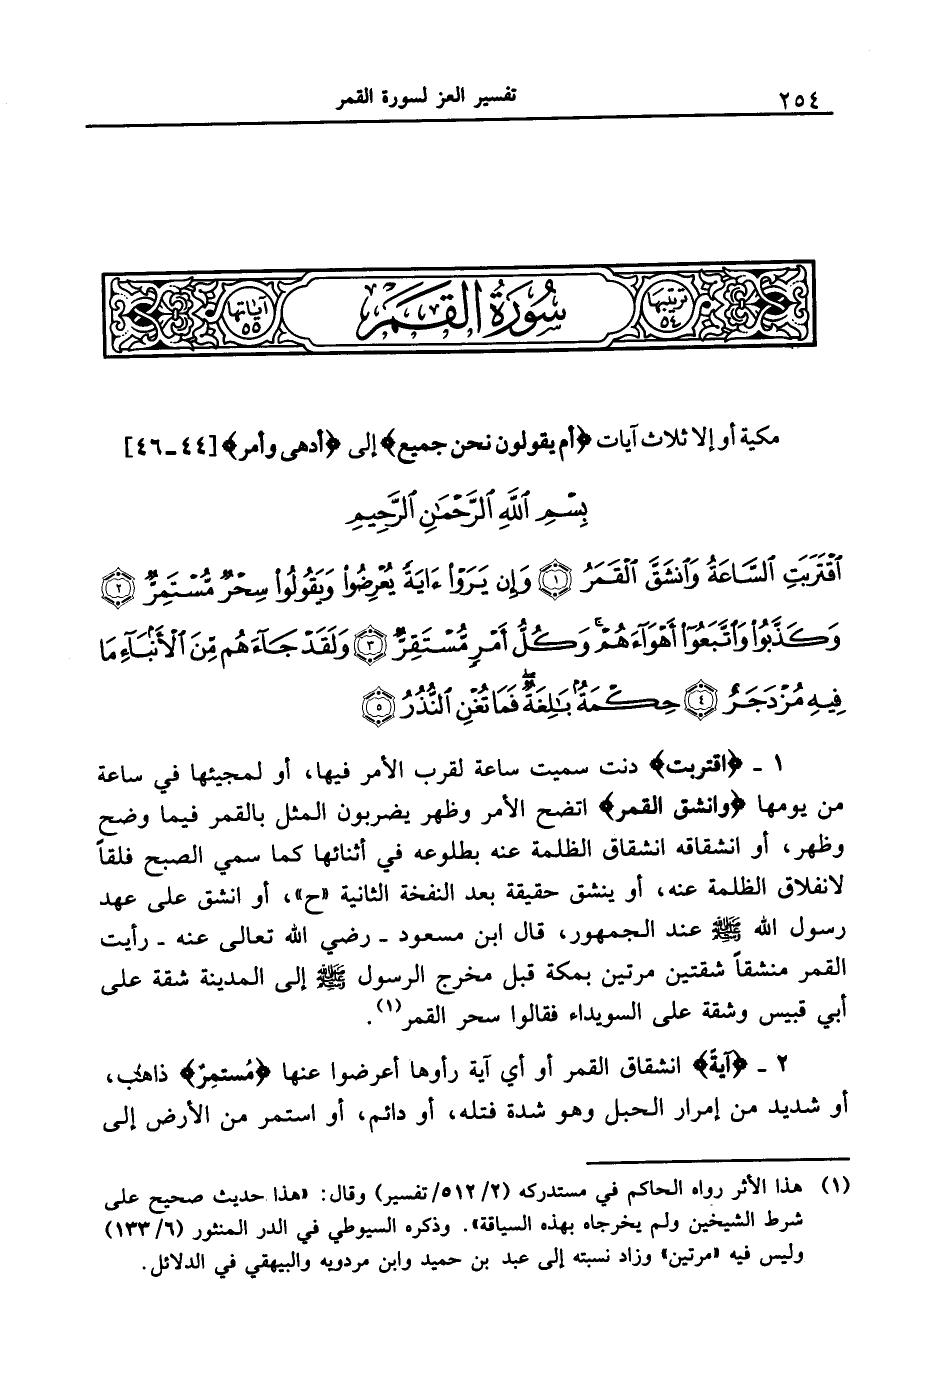 ٢٥٤
تفسير العز لسورة القمر
ترتيبها ٥٤
سُورَةُ القَمَر
آياتها ٥٥
مكية أو إلا ثلاث آيات ﴿أم يقولون نحن جميع﴾ إلى ﴿أدهى وأمر﴾ [٤٤ـ٤٦]
بِسْمِ ٱللَّهِ ٱلرَّحْمَٰنِ ٱلرَّحِيمِ
ٱقْتَرَبَتِ ٱلسَّاعَةُ وَٱنشَقَّ ٱلْقَمَرُ ١ وَإِن يَرَوْا۟ ءَايَةً يُعْرِضُوا۟ وَيَقُولُوا۟ سِحْرٌ مُّسْتَمِرٌّ ٢
وَكَذَّبُوا۟ وَٱتَّبَعُوٓا۟ أَهْوَآءَهُمْ ۚ وَكُلُّ أَمْرٍ مُّسْتَقِرٌّ ٣ وَلَقَدْ جَآءَهُم مِّنَ ٱلْأَنۢبَآءِ مَا
فِيهِ مُزْدَجَرٌ ٤ حِكْمَةٌۢ بَٰلِغَةٌ ۖ فَمَا تُغْنِ ٱلنُّذُرُ ٥
١ ـ ﴿اقتربت﴾ دنت سميت ساعة لقرب الأمر فيها، أو لمجيئها في ساعة
من يومها ﴿وانشق القمر﴾ اتضح الأمر وظهر يضربون المثل بالقمر فيما وضح
وظهر، أو انشقاقه انشقاق الظلمة عنه بطلوعه في أثنائها كما سمي الصبح فلقاً
لانفلاق الظلمة عنه، أو ينشق حقيقة بعد النفخة الثانية «ح»، أو انشق على عهد
رسول الله ﷺ عند الجمهور، قال ابن مسعود ـ رضي الله تعالى عنه ـ رأيت
القمر منشقاً شقتين مرتين بمكة قبل مخرج الرسول ﷺ إلى المدينة شقة على
أبي قبيس وشقة على السويداء فقالوا سحر القمر(١).
٢ ـ ﴿آيةً﴾ انشقاق القمر أو أي آية رأوها أعرضوا عنها ﴿مُستمِرٌ﴾ ذاهب،
أو شديد من إمرار الحبل وهو شدة فتله، أو دائم، أو استمر من الأرض إلى
(١) هذا الأثر رواه الحاكم في مستدركه (٥١٢/٢/تفسير) وقال: «هذا حديث صحيح على
شرط الشيخين ولم يخرجاه بهذه السياقة». وذكره السيوطي في الدر المنثور (١٣٣/٦)
وليس فيه «مرتين» وزاد نسبته إلى عبد بن حميد وابن مردويه والبيهقي في الدلائل.